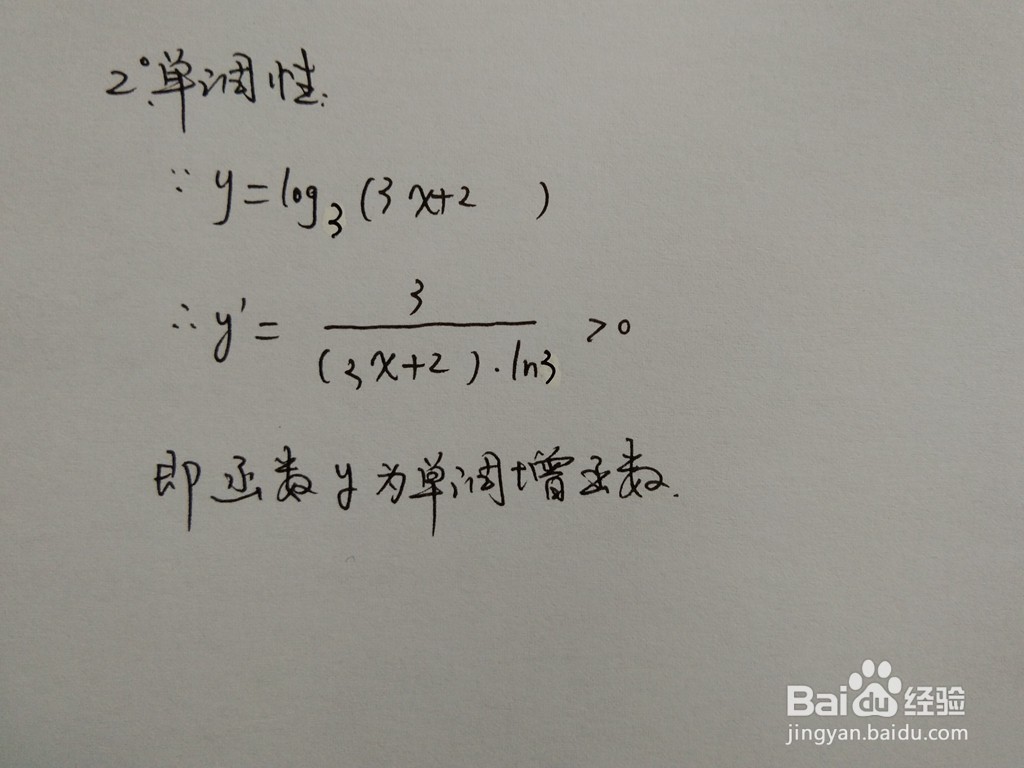 2°.单调性:
∵ y=log₃(3x+2 )
∴ y'= 3/((3x+2)·ln3) >0
即函数y为单调增函数.
Baidu经验
jingyan.baidu.com